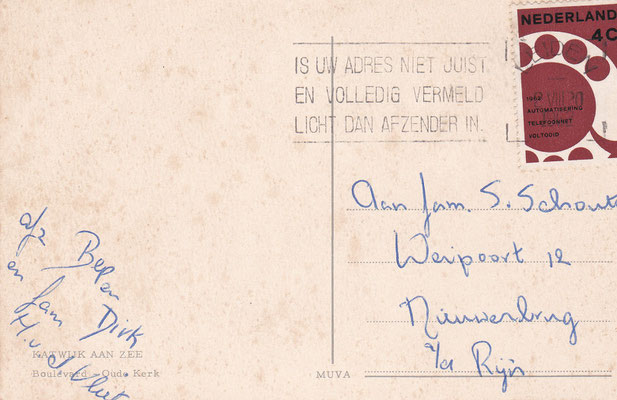 NEDERLAND
4C
1962
AUTOMATISERING
TELEFOONNET
VOLTOOID
IS UW ADRES NIET JUIST
EN VOLLEDIG VERMELD
LICHT DAN AFZENDER IN.
Aan fam. S. Schoute
Weipoort 12
Nieuwerbrug
a/d Rijn
afz Bep en Dirk
en fam
H. v d Vliet
KATWIJK AAN ZEE
Boulevard - Oude Kerk
MUVA